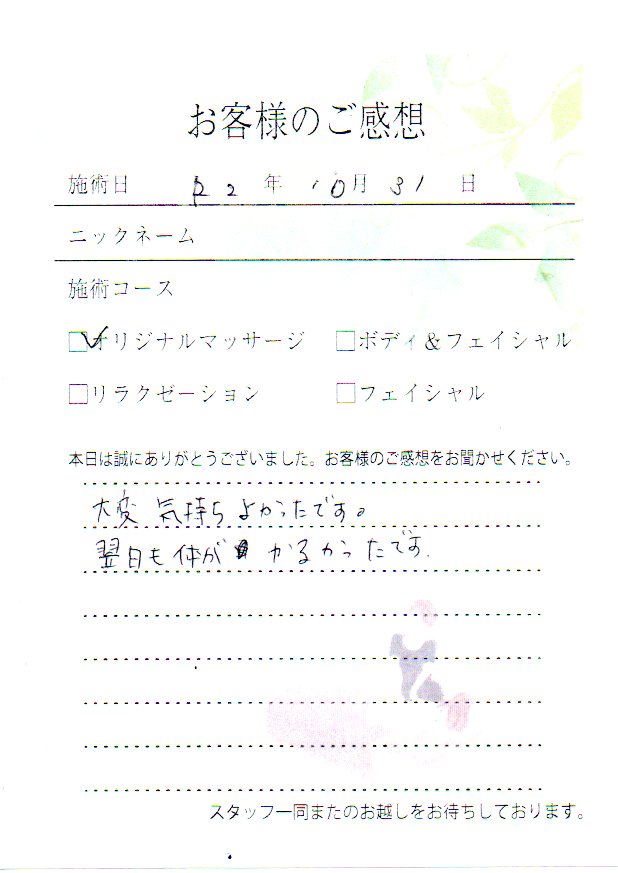 お客様のご感想
施術日 R2年 10月31日
ニックネーム
施術コース
☑オリジナルマッサージ □ボディ&フェイシャル
□リラクゼーション □フェイシャル
本日は誠にありがとうございました。お客様のご感想をお聞かせください。
大変 気持ちよかったです。
翌日も体が かるかったです.
スタッフ一同またのお越しをお待ちしております。